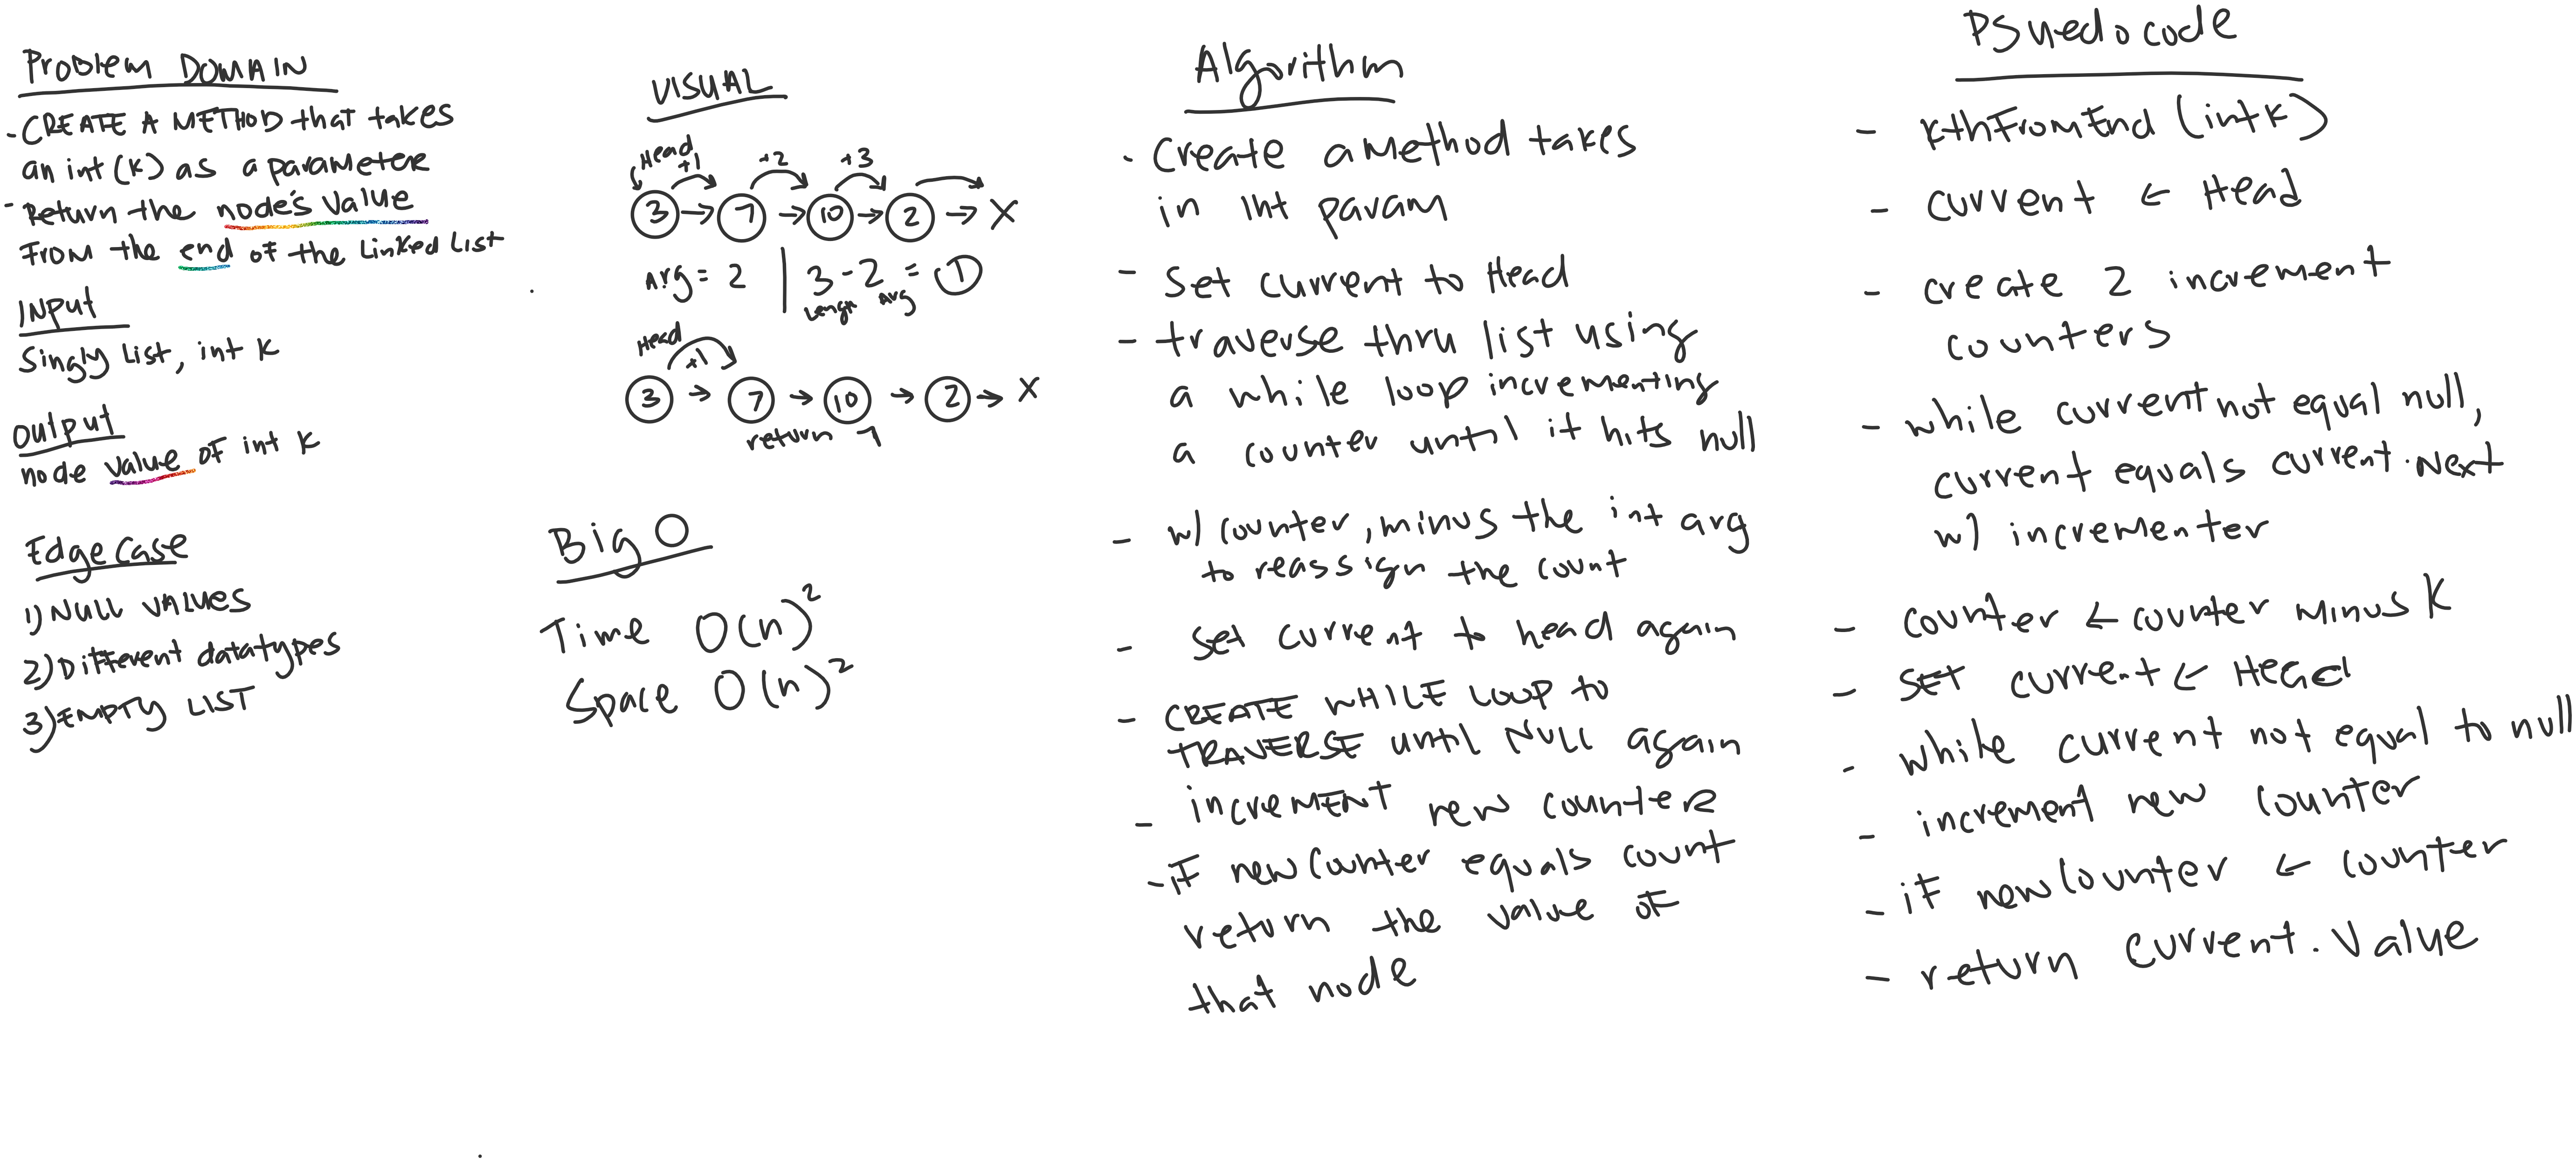 Problem DOMAIN
- CREATE A METHOD that takes
an int (k) as a parameter
- Return the node's value
From the end of the Linked List
INPUT
Singly List, int k
OUTPUT
node value of int k
Edge Case
1) NULL VALUES
2) Different datatypes
3) EMPTY LIST
VISUAL
Head
+1 +2 +3
3 → 7 → 10 → 2 → X
Arg = 2 | 3 - 2 = 1
Arg
Head
+1
3 → 7 → 10 → 2 → X
return 7
Big O
Time O(n)²
Space O(n)²
Algorithm
- Create a method takes
in int param
- Set current to Head
- traverse thru list using
a while loop incrementing
a counter until it hits null
- w/ counter, minus the int arg
to reassign the count
- Set current to head again
- CREATE WHILE LOOP to
TRAVERSE until NULL again
- increment new counter
- if new Counter equals count
return the value of
that node
PSuedocode
- kthFromEnd (int k)
- current ← Head
- create 2 increment
counters
- while current not equal null,
current equals current.Next
w/ incrementer
- counter ← counter minus K
- SET current ← Head
- while current not equal to null
- increment new counter
- if newCounter ← counter
- return current.Value